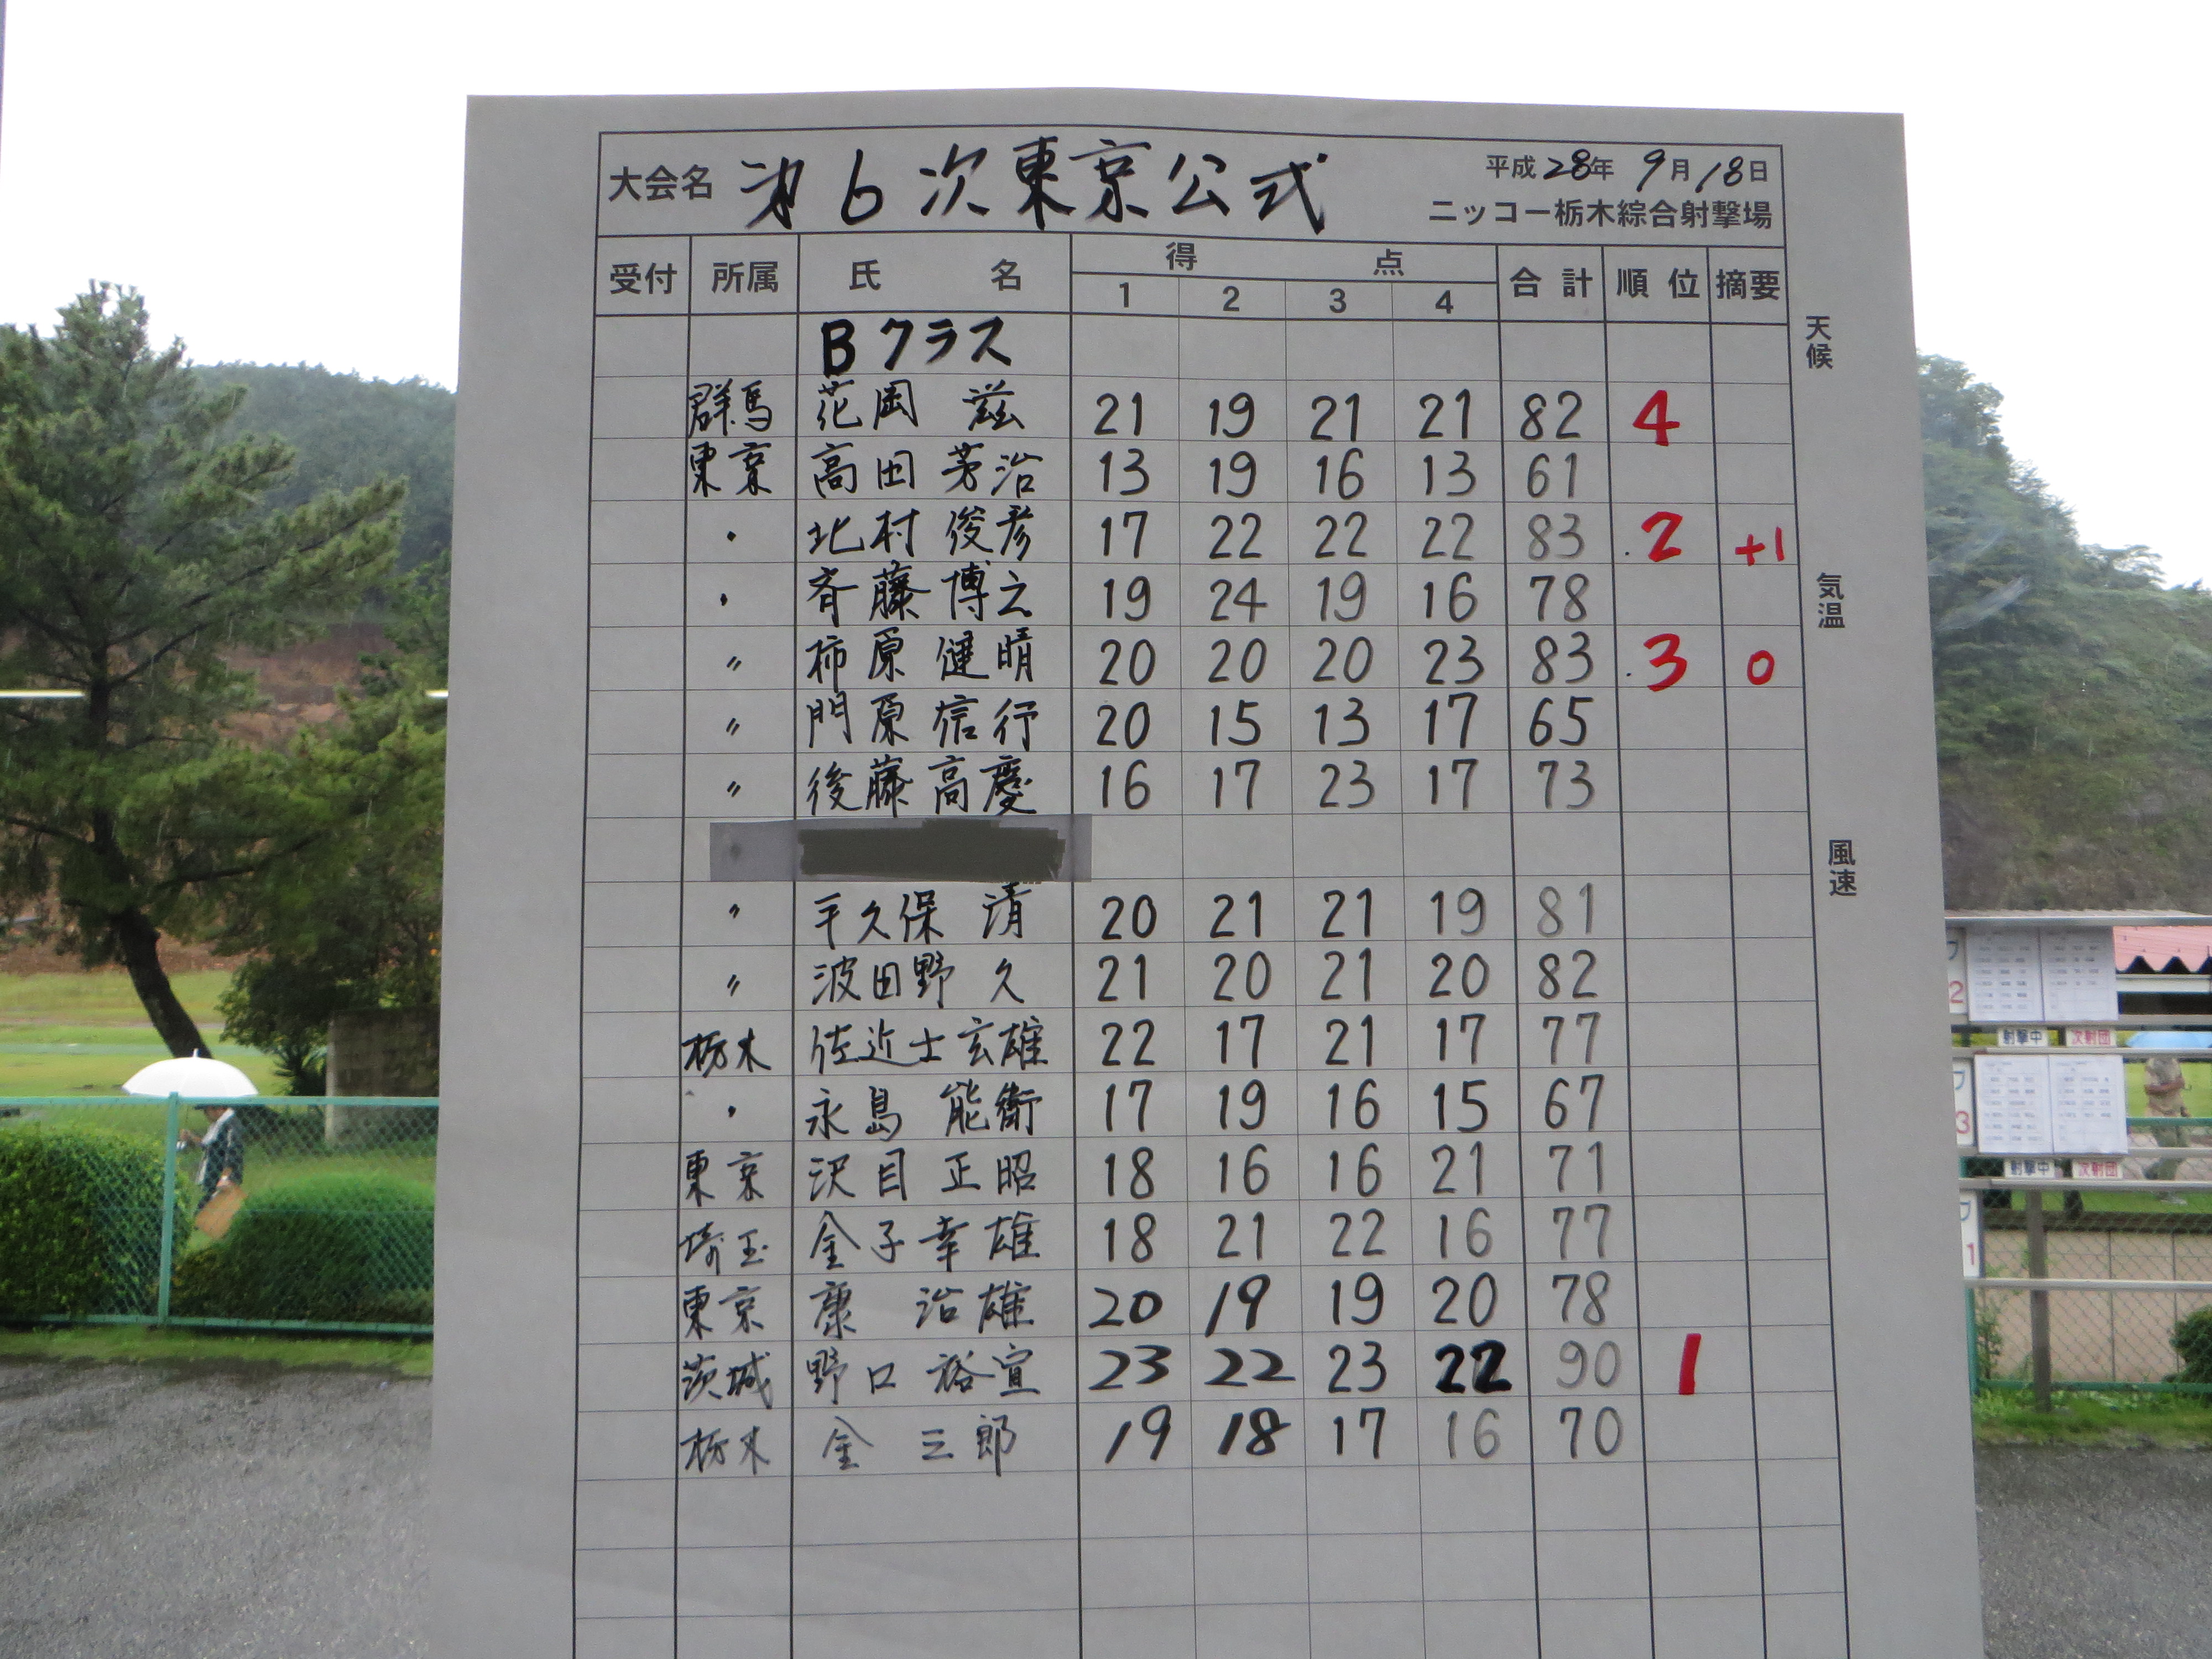 大会名 第6次東京公式 平成28年 9月18日
ニッコー栃木綜合射撃場
受付 所属 氏名 得点 合計 順位 摘要
1 2 3 4
Bクラス
群馬 花岡 滋 21 19 21 21 82 4
東京 高田 芳治 13 19 16 13 61
〃 北村 俊彦 17 22 22 22 83 2 +1
〃 斉藤 博之 19 24 19 16 78
〃 柿原 健晴 20 20 20 23 83 3 0
〃 門原 信行 20 15 13 17 65
〃 後藤 高慶 16 17 23 17 73
〃 平久保 清 20 21 21 19 81
〃 波田野 久 21 20 21 20 82
栃木 佐近士 玄雄 22 17 21 17 77
〃 永島 能衛 17 19 16 15 67
東京 沢目 正昭 18 16 16 21 71
埼玉 金子 幸雄 18 21 22 16 77
東京 康 治雄 20 19 19 20 78
茨城 野口 裕宣 23 22 23 22 90 1
栃木 金 三郎 19 18 17 16 70
天候
気温
風速
2
射撃中 次射団
3
射撃中 次射団
1